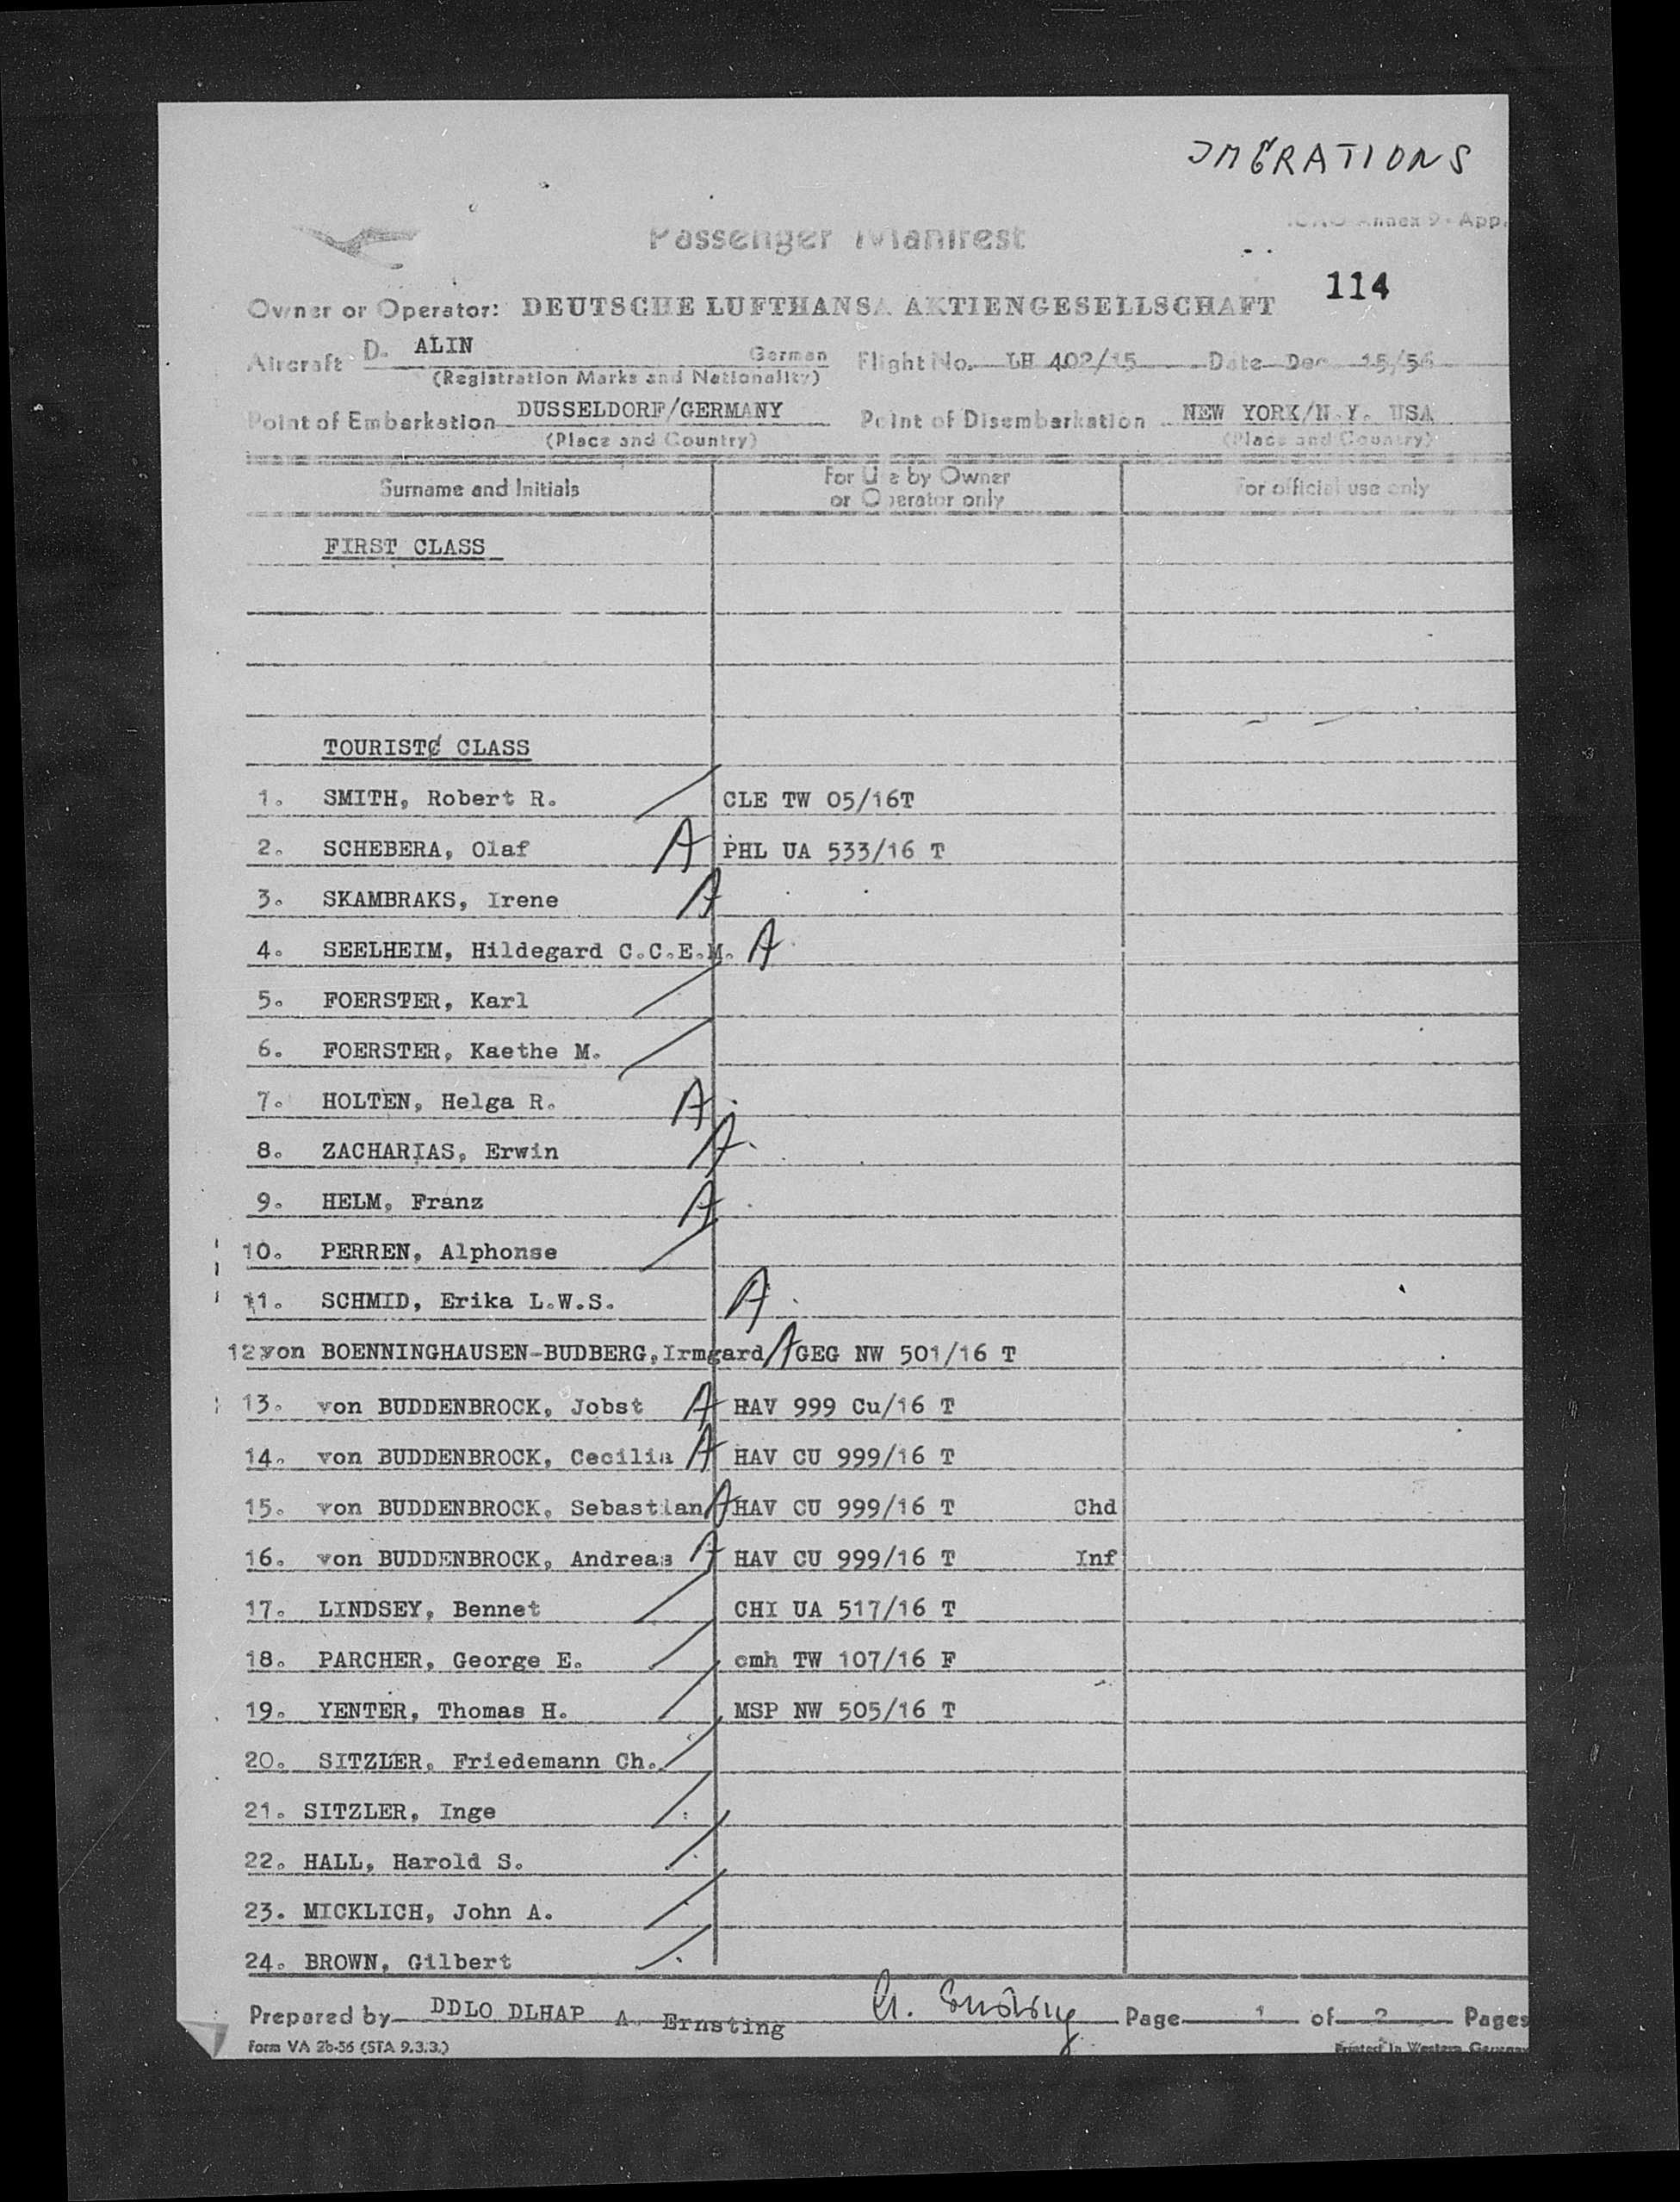 IMERATIONS
ICAO Annex 9 - App.
Passenger Manifest
114
Owner or Operator: DEUTSCHE LUFTHANSA AKTIENGESELLSCHAFT
Aircraft D. ALIN German Flight No. LH 402/15 Date Dec 15/56
(Registration Marks and Nationality)
Point of Embarkation DUSSELDORF/GERMANY Point of Disembarkation NEW YORK/N.Y. USA
(Place and Country) (Place and Country)
Surname and Initials For Use by Owner or Operator only For official use only
FIRST CLASS
TOURIST CLASS
1. SMITH, Robert R. CLE TW 05/16T
2. SCHEBERA, Olaf A PHL UA 533/16 T
3. SKAMBRAKS, Irene A
4. SEELHEIM, Hildegard C.C.E.M. A
5. FOERSTER, Karl
6. FOERSTER, Kaethe M.
7. HOLTEN, Helga R. A
8. ZACHARIAS, Erwin A
9. HELM, Franz A
10. PERREN, Alphonse
11. SCHMID, Erika L.W.S. A
12 von BOENNINGHAUSEN-BUDBERG, Irmgard A GEG NW 501/16 T
13. von BUDDENBROCK, Jobst A HAV 999 Cu/16 T
14. von BUDDENBROCK, Cecilia A HAV CU 999/16 T
15. von BUDDENBROCK, Sebastian A HAV CU 999/16 T Chd
16. von BUDDENBROCK, Andreas A HAV CU 999/16 T Inf
17. LINDSEY, Bennet CHI UA 517/16 T
18. PARCHER, George E. cmh TW 107/16 F
19. YENTER, Thomas H. MSP NW 505/16 T
20. SITZLER, Friedemann Ch.
21. SITZLER, Inge
22. HALL, Harold S.
23. MICKLICH, John A.
24. BROWN, Gilbert
Prepared by DDLO DLHAP A. Ernsting A. Ernsting Page 1 of 2 Pages
Form VA 2b-56 (STA 9.3.3.) Printed in Western Germany